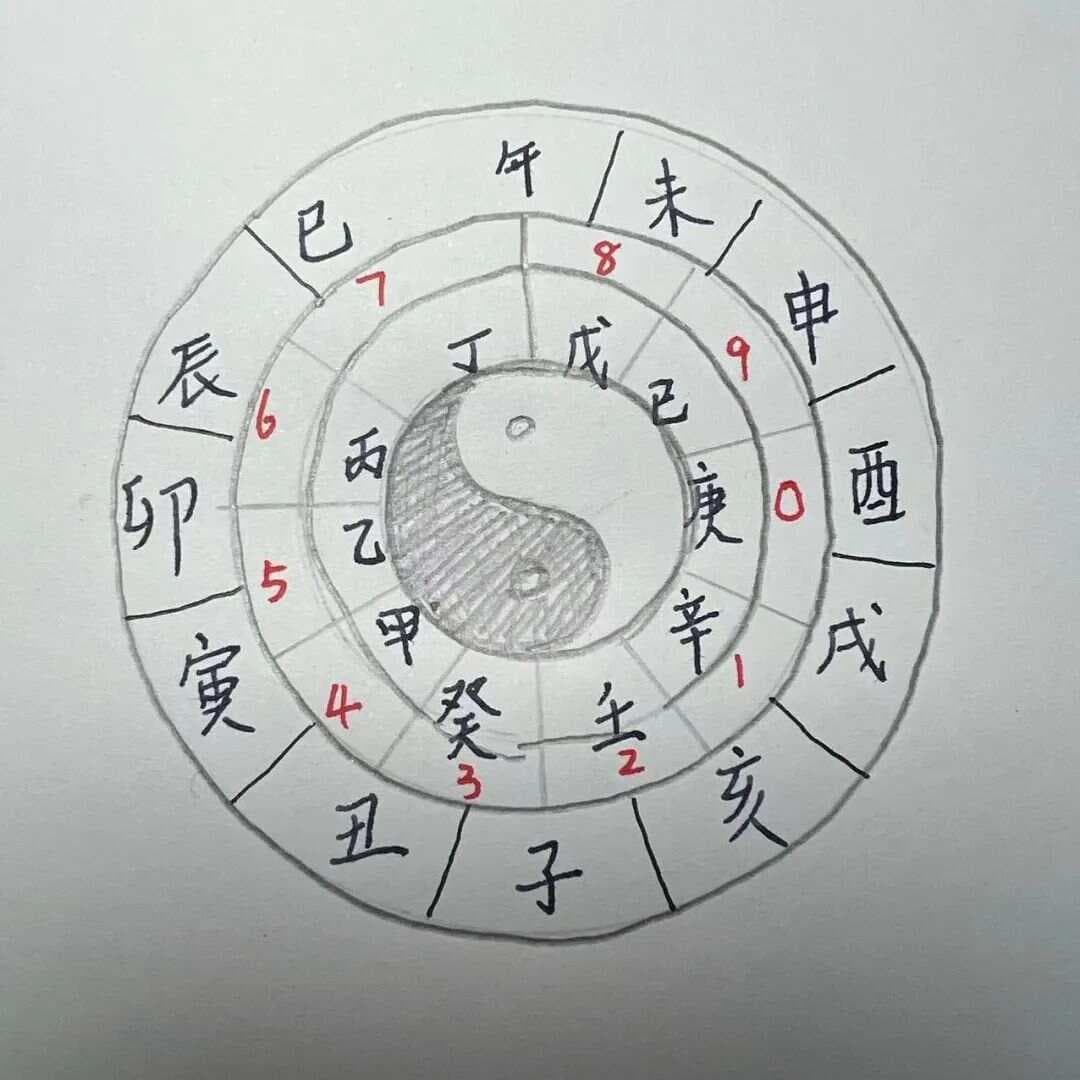 午
未
申
酉
戌
亥
子
丑
寅
卯
辰
巳
8
9
0
1
2
3
4
5
6
7
戊
己
庚
辛
壬
癸
甲
乙
丙
丁